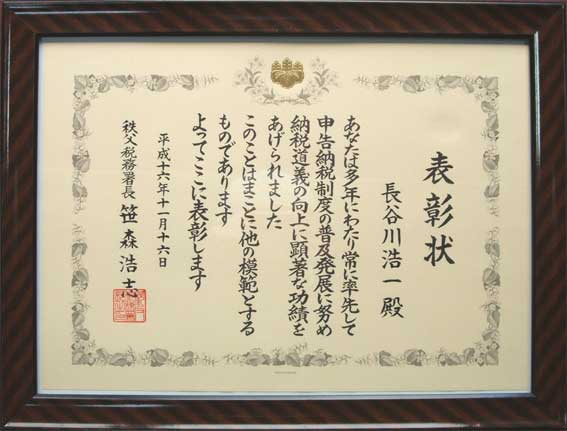 表彰状
長谷川浩一殿
あなたは多年にわたり常に率先して
申告納税制度の普及発展に努め
納税道義の向上に顕著な功績を
あげられました
このことはまことに他の模範とする
ものであります
よってここに表彰します
平成十六年十一月十六日
秩父税務署長 笹森浩志